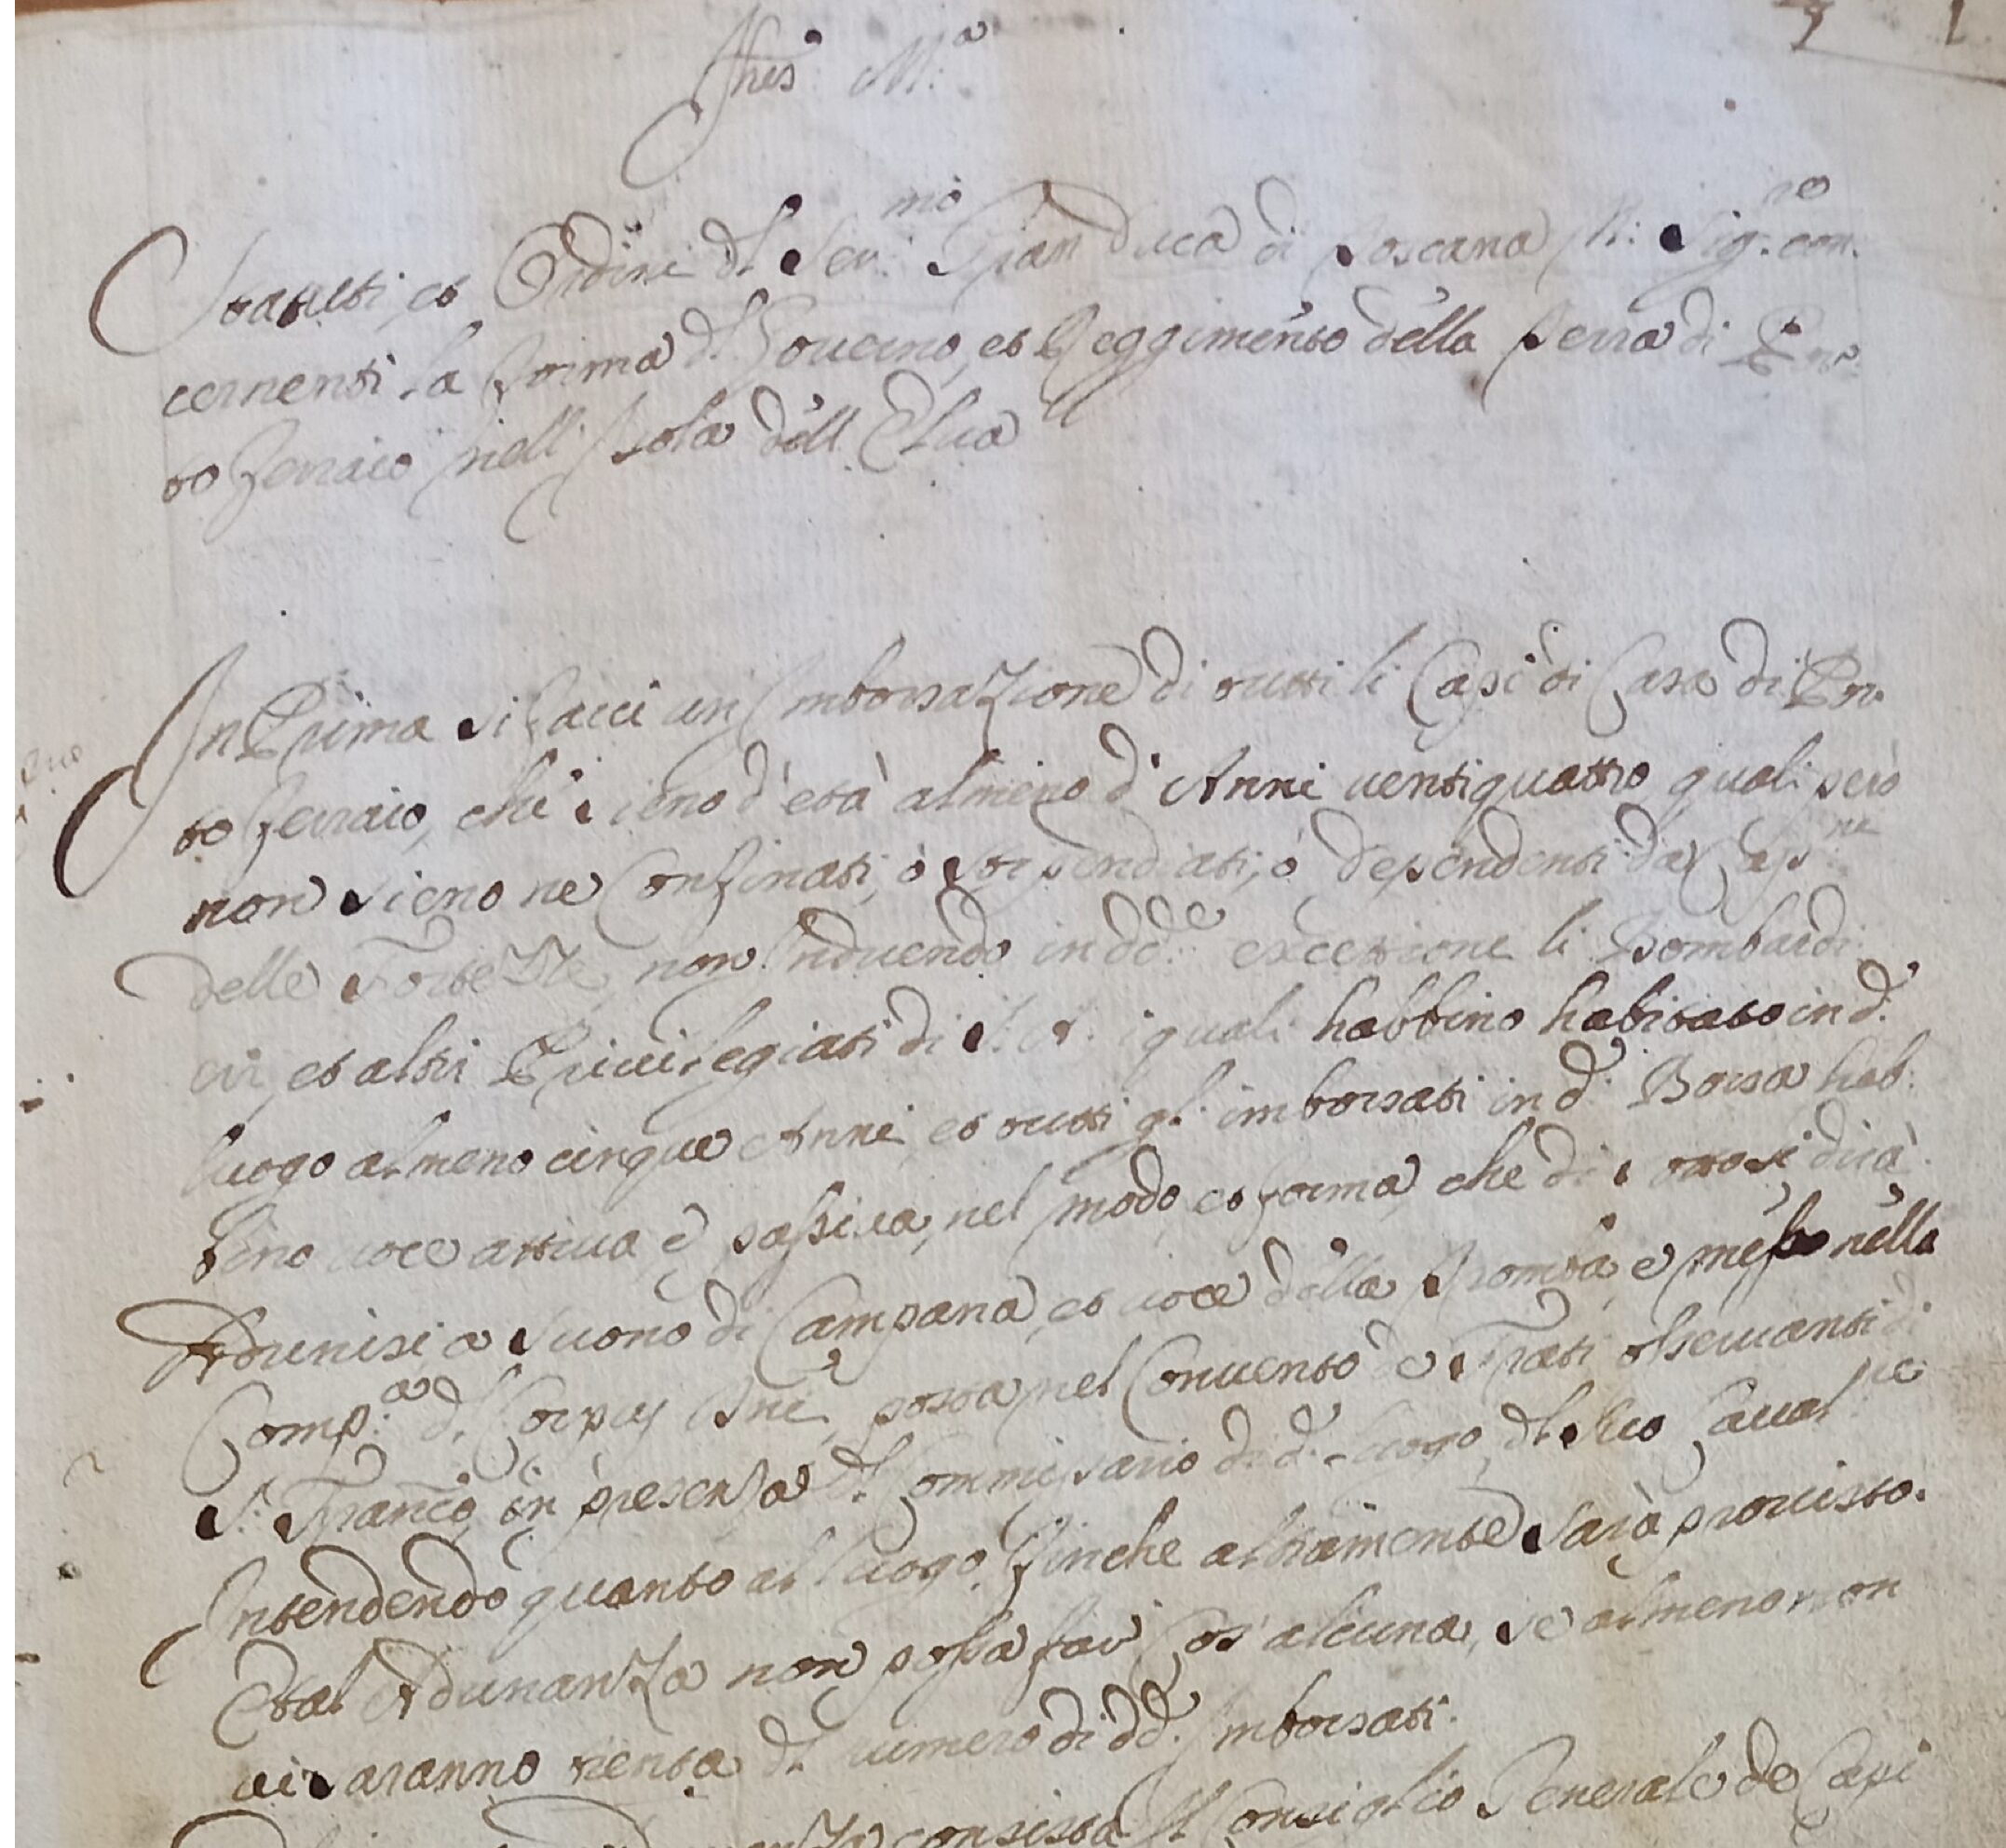 Jhes. M.a
Statuti, et Ordini dl Ser.mo Gran Duca di Toscana N: Sig.re con:
cernenti la forma d. Gouerno, et Reggimento della Terra di Por:
to Ferraio nell'Isola dell'Elua
In Prima si facci un Imborsazione di tutti li Capi di Casa di Por:
to Ferraio, che sieno d'età almeno d'Anni uentiquattro quali però
non sieno ne Confinati, ò stipendiati, ò dependenti da Cap.ne
delle Fortezze, non Inducendo in dd.e eccettione li Bombardi:
eri, et altri Priuilegiati di S. A. i quali habbino habitato in d.
luogo almeno cinque Anni, et tutti gl'imborsati in d. Borsa hab:
bino uoce attiua, e passiua, nel modo, et forma, che di sotto si dirà.
Adunisi a suono di Campana, et uoce della Tromba, e messo nella
Comp.a d. Corpus Dni, posta nel Conuento de Frati osseruanti di
S. Franco, in presenza dl Commissario di d. luogo, dl suo Caual.re
Intendendo quanto al luogo finche altramente sarà prouisto.
E tal Adunanza non possa far Cos'alcuna, se almeno non
ui saranno trenta dl numero di dd. Imborsati.
consista Il Consiglio Generale de Capi